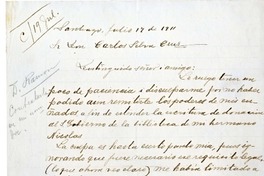 C/19 jul.
Santiago, Julio 17 de 1911
A Don Carlos Silva Cruz
Distinguido señor i amigo:
Le ruego tener un
poco de paciencia i disculparme por no haber
podido aun remitirle los poderes de mis cu-
ñados a fin de estender la escritura de donacion
al Gobierno de la biblioteca de mi hermano
Nicolas
La culpa es hasta cierto punto mia, pues ig-
norando que fuera necesario ese requisito legal,
(lo que ahora veo claro) me habia limitado a